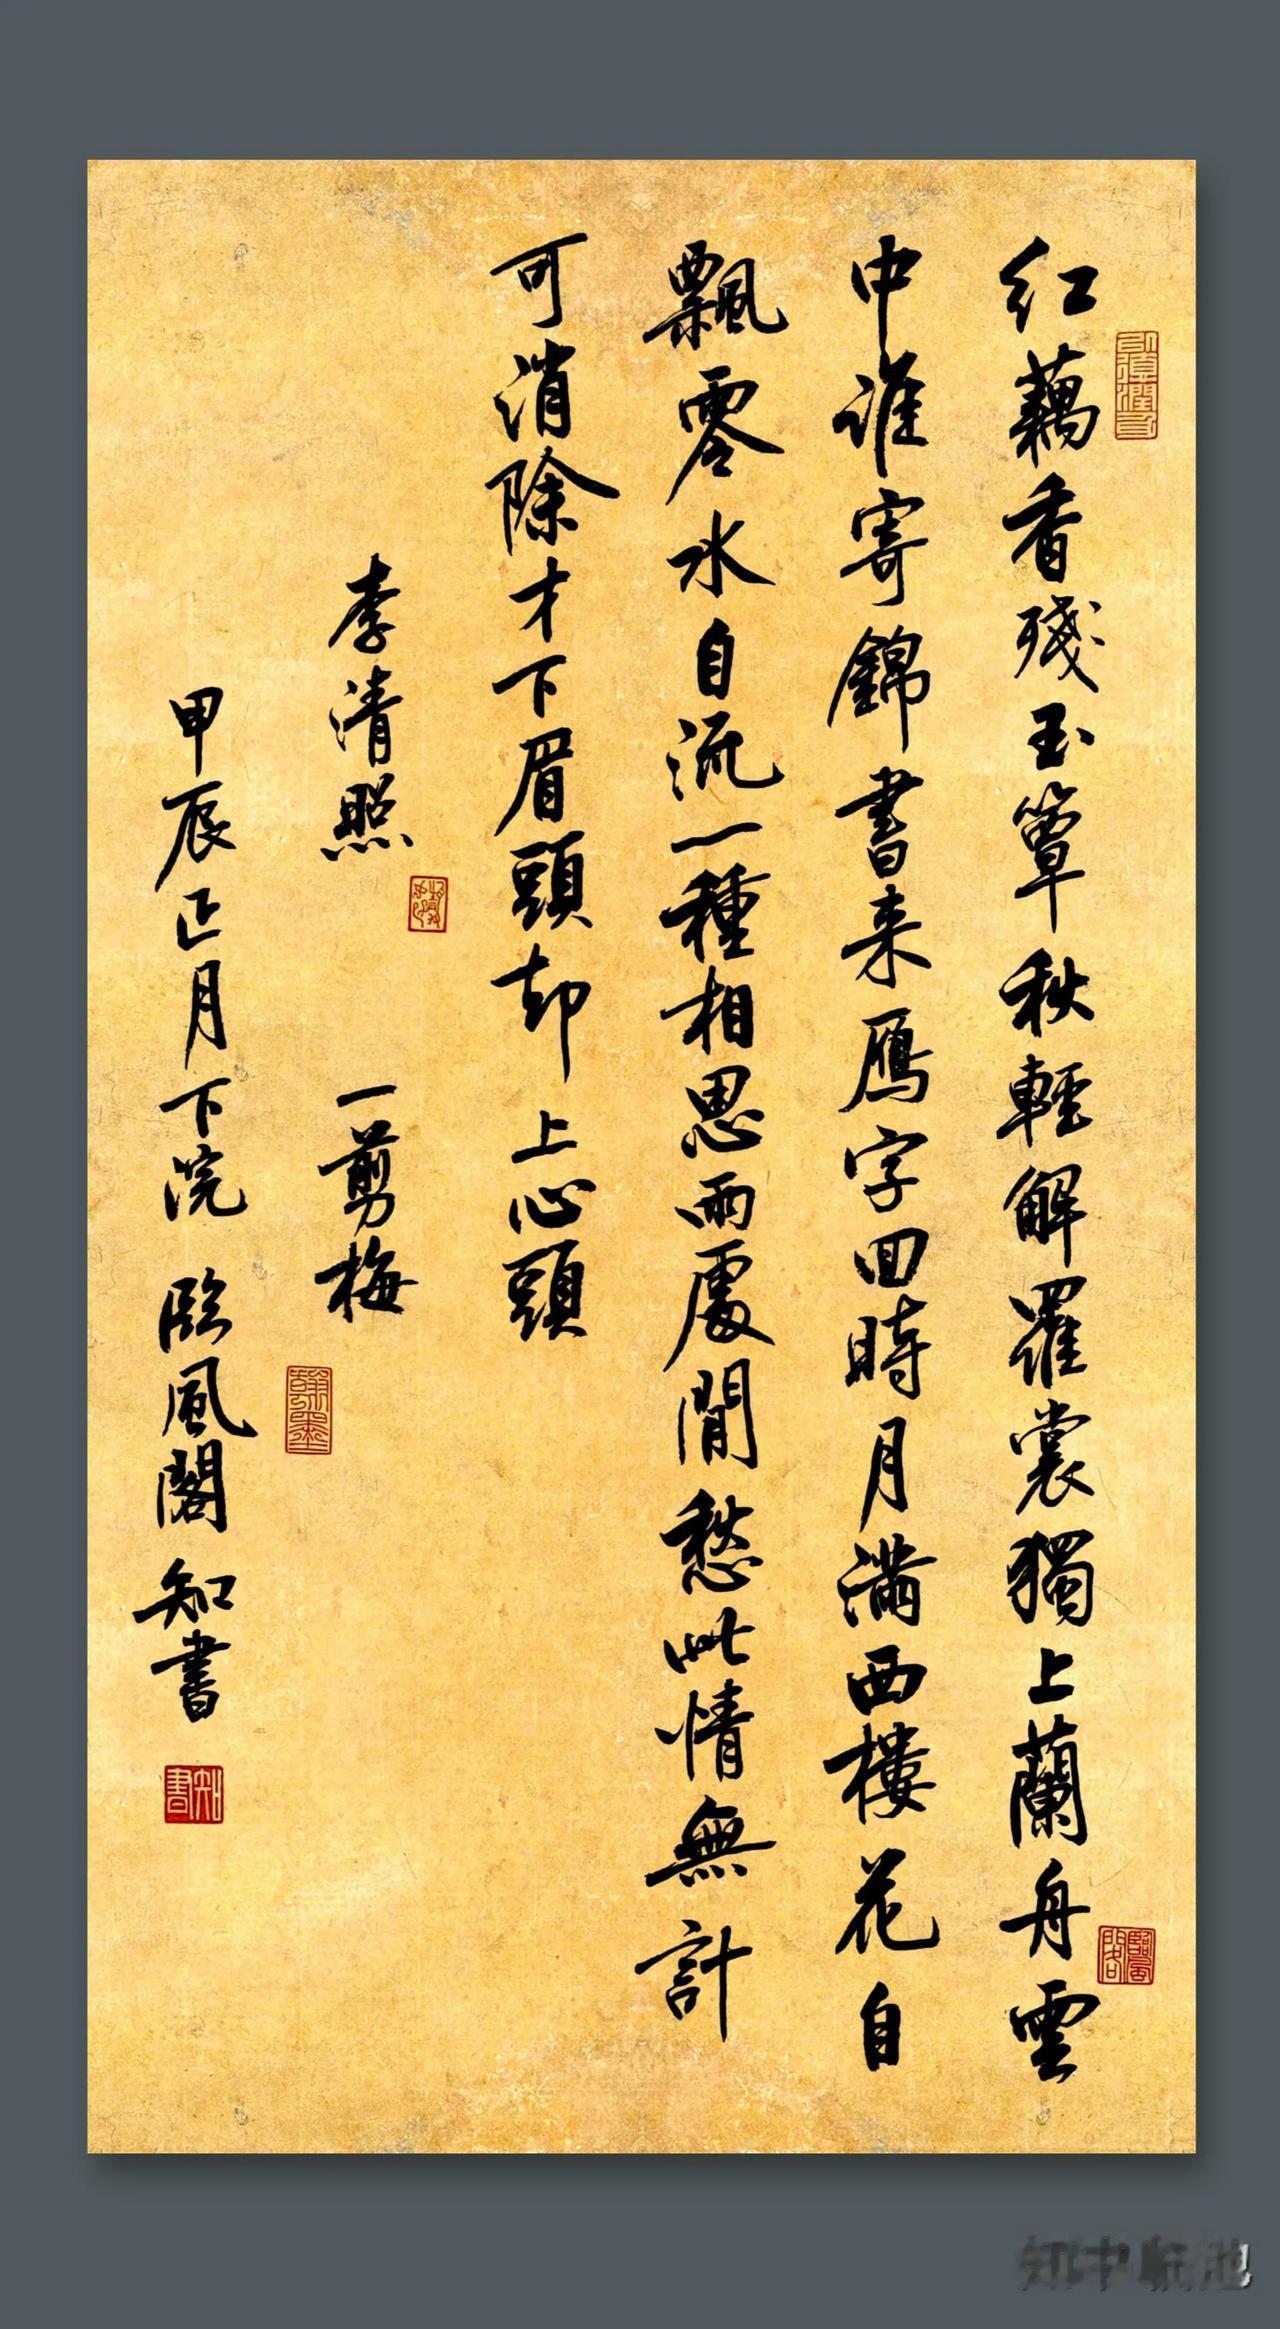 红藕香殘玉簟秋輕解羅裳獨上蘭舟雲
中誰寄錦書来鴈字回時月滿西樓花自
飄零水自流一種相思兩處閒愁此情無計
可消除才下眉頭却上心頭
李清照 一剪梅
甲辰正月下浣 臨風閣 知書
知書
臨風閣
翰墨